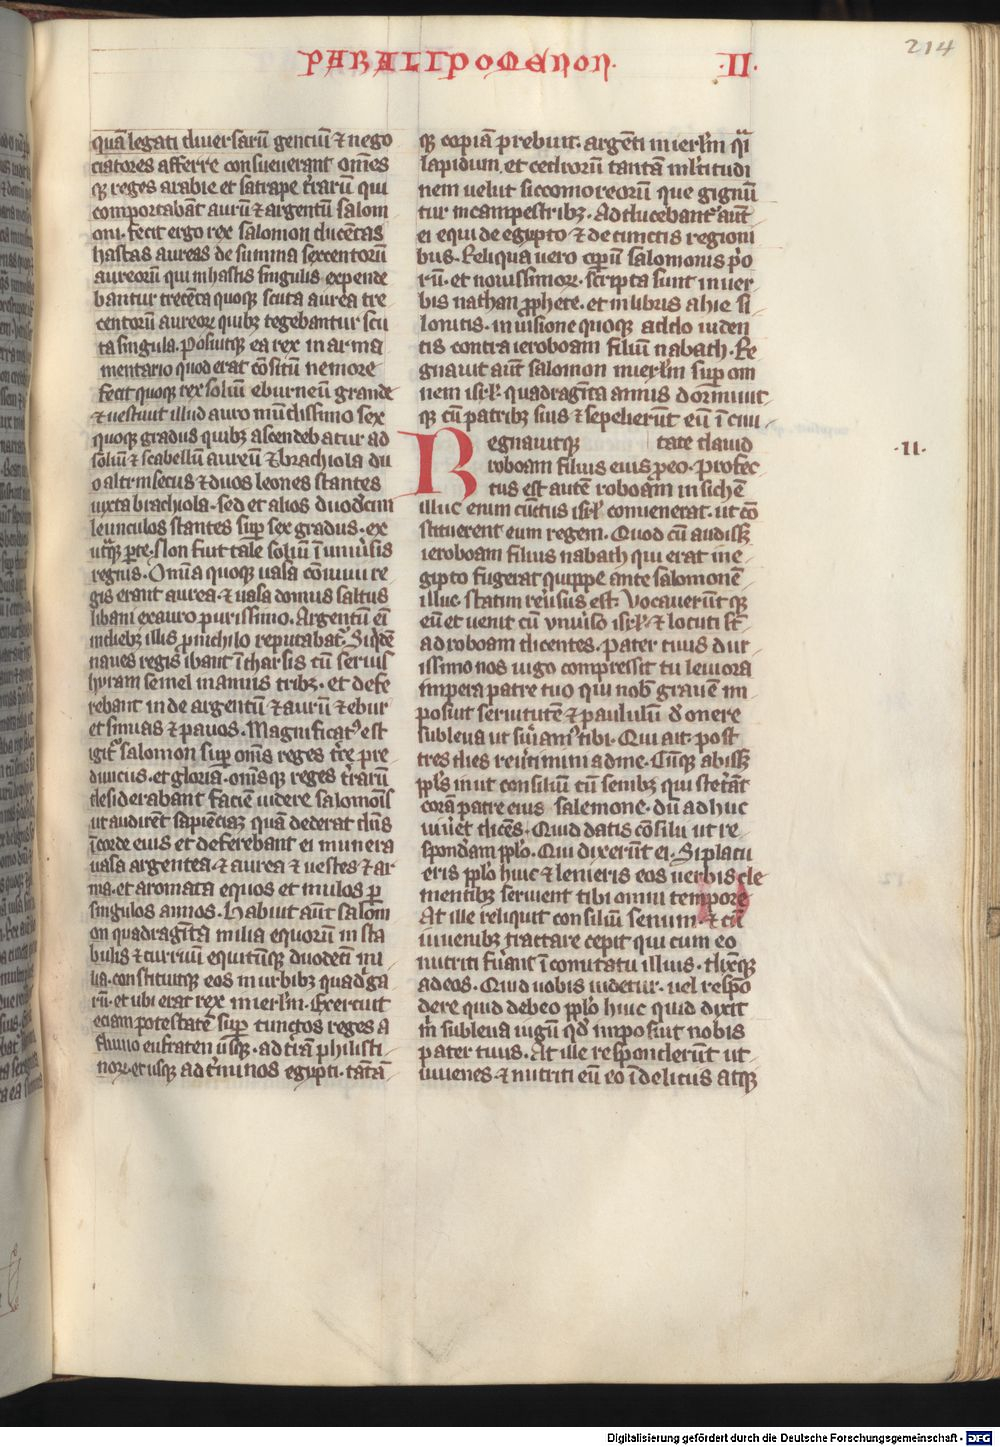 PARALIPOMENON · II ·
214
quā legati diuersarū genciū ⁊ nego
ciatores afferre consueuerant omēs
qȝ reges arabie et satrape t̄rarū qui
comportabāt aurū ⁊ argentū salom
oni · fecit ergo rex salomon ducētas
hastas aureas de summa sexcentorū
aureorū qui in hastis singulis expende
bantur trecēta quoqȝ scuta aurea tre
centorū aureoꝝ quibȝ tegebantur scu
ta singula · Posuitqȝ ea rex in arma
mentario quod erat cōsitū nemore
fecit quoqȝ rex soliū eburneū grande
⁊ uestiuit illud auro mūdissimo sex
quoqȝ gradus quibȝ ascendebatur ad
soliū ⁊ scabellū aureū ⁊ brachiola du
o altrinsecus ⁊ duos leones stantes
iuxta brachiola · sed et alios duodecim
leunculos stantes suꝑ sex gradus · ex
utraqȝ ꝑte · Non fiut tale soliū ī uniūsis
regnis · Omīa quoqȝ uasa cōuiuii re
gis erant aurea · ⁊ uasa domus saltus
libani ex auro purissimo · Argentū eī
in diebȝ illis ꝓ nichilo reputabat᷑ · Siqͥdē
naues regis ibant ī tharsis cū seruis
hyram semel in annis tribȝ · et defe
rebant inde argentū ⁊ aurū ⁊ ebur
et simias ⁊ pauos · Magnificat᷑ est
igit᷑ salomon suꝑ omēs reges t̄re pre
diuiciis · et gloria · omēsqȝ reges t̄rarū
desiderabant faciē uidere salomōis
ut audirent sapienciaꝫ quā dederat dn̄s
ī corde eius et deferebant ei munera
uasa argentea · ⁊ aurea ⁊ uestes ⁊ ar
ma · et aromata equos et mulos ꝑ
singulos annos · Habuit aūt salom
on quadragīta milia equorū in sta
bulis ⁊ curruū equitūqȝ duodecī mi
lia · constituitqȝ eos in urbibȝ quad'ga
rū · et ubi erat rex in ierl̄m · Exercuit
eciam potestatē suꝑ cunctos reges a
fluuio eufraten usqȝ · ad t̄rā philisti
noꝝ · et usqȝ ad t̄minos egypti · tātā
qȝ copiā prebuit · argēti in ierl̄m qͣi
lapidum · et cedrorū tantam ml̄titudi
nem uelut siccomoreorū que gignū
tur in campestribȝ · Adducebant᷑ aūt
ei equi de egypto · ⁊ de cunctis regioni
bus · Reliqua uero operū salomonis p̄o
rū · et nouissimoꝝ · scripta sunt in uer
bis nathan ꝓphete · et in libris ahie si
lonitis · in uisione quoqȝ addo uiden
tis contra ieroboam filiū nabath · Re
gnauit aūt salomon in ierl̄m suꝑ om
nem isrl̄ · quadragīta annis dormiuit
qȝ cū patribȝ suis ⁊ sepelierūt eū ī ciui
Regnauitqȝ tate dauid · II ·
roboam filius eius ꝓ eo · Profec
tus est autē roboam in sichē
illuc enim cūctus isrl̄ conuenerat · ut cō
stituerent eum regem · Quod cū audissȝ
ieroboam filius nabath qui erat in e
gipto fugerat quippe ante salomonē
illuc · statim reūsus est · Vocauerūt qȝ
eū et uenit cū uniūso isrl̄ · ⁊ locuti sūt
ad roboam dicentes · Pater tuus dur
issimo nos iugo compressit tu leuiora
impera patre tuo qui nob̄ grauē im
posuit seruitutē ⁊ paululū d̄ onere
subleua ut suīam᷒ tibi · Qui ait · post
tres dies reūtimini ad me · Cūqȝ abissȝ
ppl̄s in ut consiliū cū senibȝ qui stet̄āt
corā patre eius salemone · dū adhuc
uiūet dicēs · Quid datis cōsilii ut re
spondam ppl̄o · Qui dixerūt ei · Si placu
eris ppl̄o huic ⁊ lenieris eos uerbis cle
mentibȝ seruient tibi omni tempore
At ille reliquit consiliū senum · ⁊ cū
iuuenibȝ tractare cepit qui cum eo
nutriti fūant ī comitatu illius · dixitqȝ
ad eos · Quid uobis uidetur · uel respō
dere quid debeo ppl̄o huic quid dixit
m̄ subleua iugū qd̄ imposuit nobis
pater tuus · At ille responderūt ut
iuuenes · ⁊ nutriti eū eo ī delitiis atqȝ
Digitalisierung gefördert durch die Deutsche Forschungsgemeinschaft - DFG